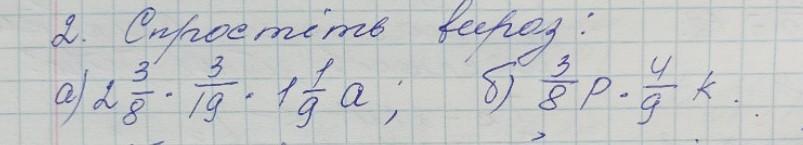 2. Спростіть вираз:
а) 2 3/8 · 3/19 · 1 1/9 a; б) 3/8 p · 4/9 k.